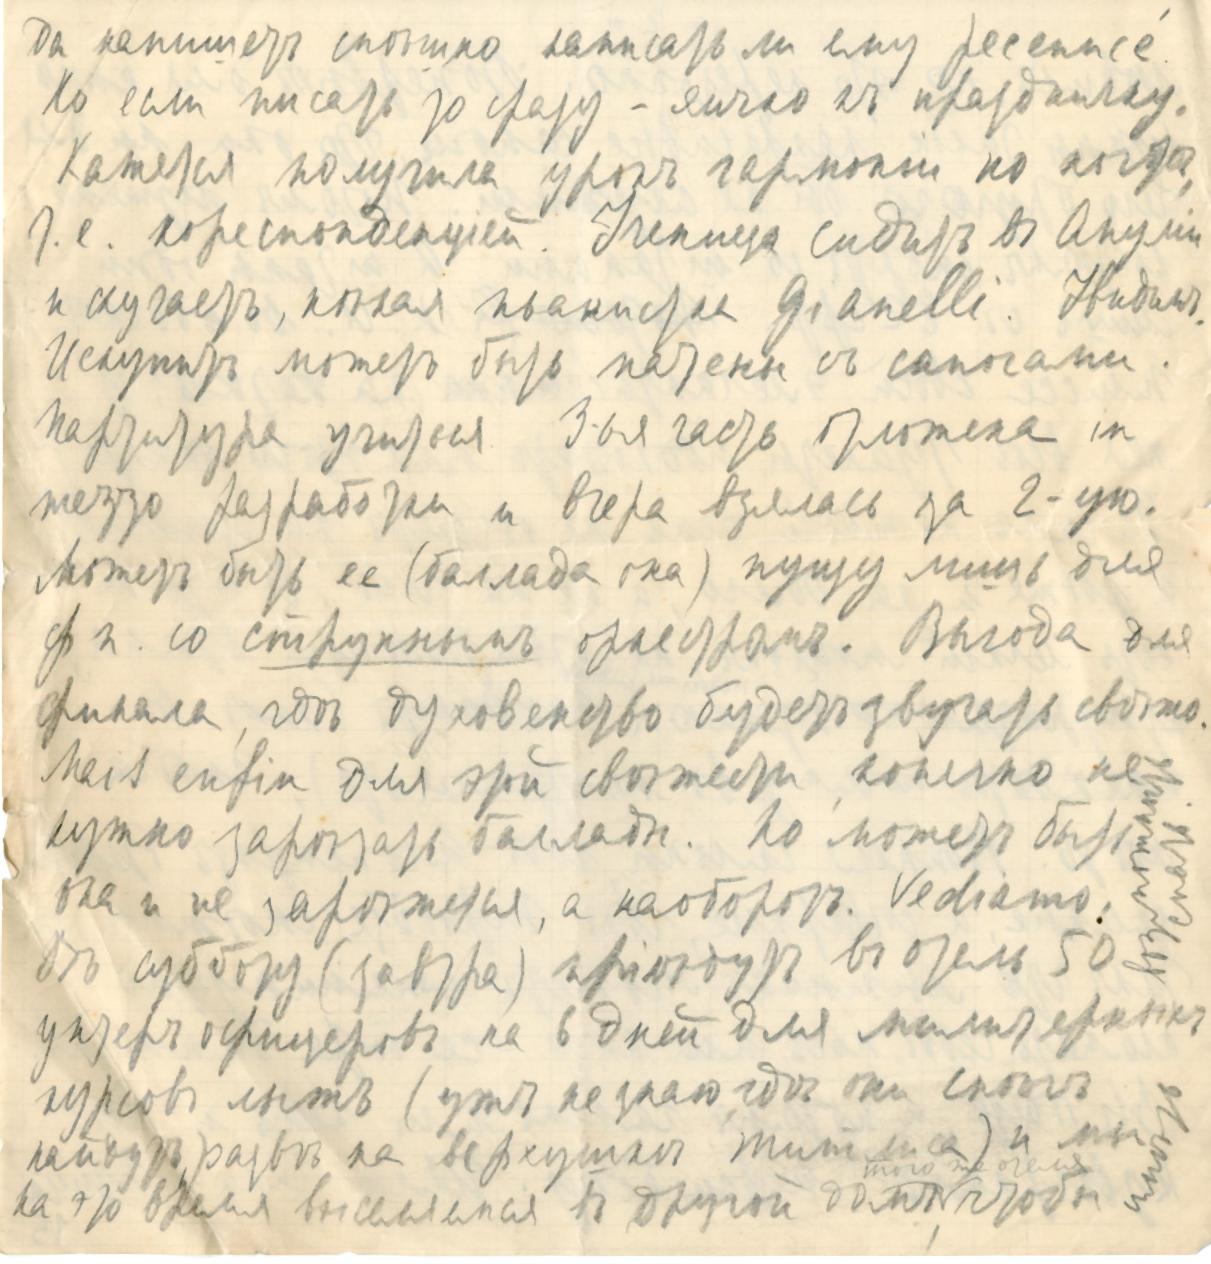 Да напишетъ спѣшно написать ли ему
Но если писать то сразу – яичко къ праздничку.
Кажется получила урокъ гармоніи но
т.е. кореспонденціей. Ученица сидитъ въ Англіи
и скучаетъ, нѣкая пьанистка Gianelli. Увидимъ.
Искупитъ можетъ быть печены съ сапогами.
Партитура учится. 3-ья часть отложена in
mezzo разработки и вчера взялась за 2-ую.
Можетъ быть ее (баллада она) пущу лишь для
ф п. со струннымъ оркестромъ. Выгода для
финала, гдѣ духовенство будетъ звучать свѣжо.
Mais enfin для этой свѣжести, конечно не
нужно зарѣзать баллады. Но можетъ быть
она и не зарѣжется, а наоборотъ. Vediamo.
Въ субботу (завтра) пріѣдутъ въ отель 50
унтеръ офицеровъ на 6 дней для милитерныхъ
курсовъ лыжъ (ужъ не знаю, гдѣ они снѣгъ
найдутъ, развѣ на верхушкѣ Титлиса) и мы
того же отеля
на это время выселяемся въ другой домъ, чтобы
имѣть
возможность спать.